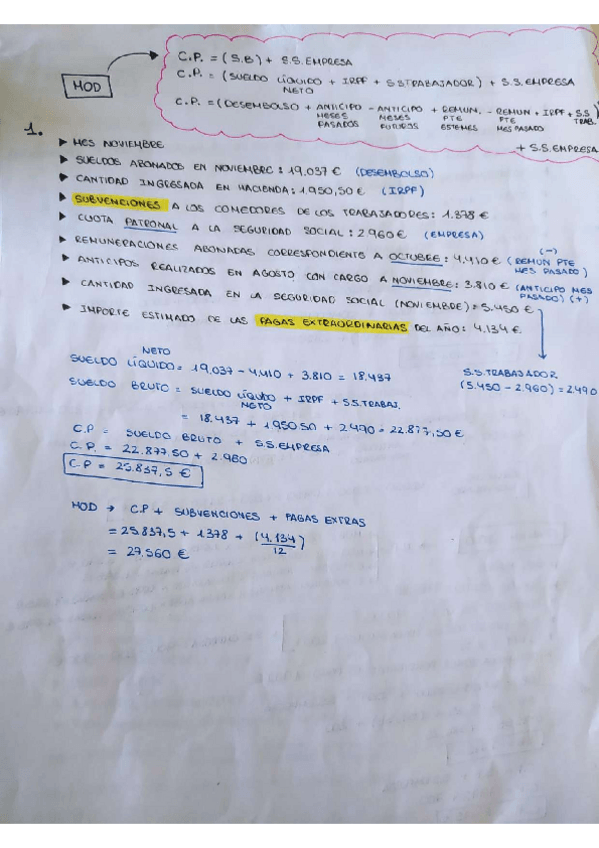 C.P. = (S.B) + S.S. EMPRESA
C.P. = (SUELDO LÍQUIDO + IRPF + S.S TRABAJADOR) + S.S. EMPRESA
NETO
MOD
C.P. = (DESEMBOLSO + ANTICIPO MESES PASADOS - ANTICIPO MESES FUTUROS + REMUN. PTE ESTE MES - REMUN PTE MES PASADO + IRPF + S.S TRAB.)
+ S.S. EMPRESA
1.
➤ MES NOVIEMBRE
➤ SUELDOS ABONADOS EN NOVIEMBRE: 19.037 € (DESEMBOLSO)
➤ CANTIDAD INGRESADA EN HACIENDA: 1.950,50 € (IRPF)
➤ SUBVENCIONES A LOS COMEDORES DE LOS TRABAJADORES: 1.378 €
➤ CUOTA PATRONAL A LA SEGURIDAD SOCIAL: 2960 € (EMPRESA)
➤ REMUNERACIONES ABONADAS CORRESPONDIENTE A OCTUBRE: 4.410 € (REMUN PTE MES PASADO) (-)
➤ ANTICIPOS REALIZADOS EN AGOSTO CON CARGO A NOVIEMBRE: 3.810 € (ANTICIPO MES PASADO) (+)
➤ CANTIDAD INGRESADA EN LA SEGURIDAD SOCIAL (NOVIEMBRE) = 5.450 €
➤ IMPORTE ESTIMADO DE LAS PAGAS EXTRAORDINARIAS DEL AÑO: 4.134 €
NETO
SUELDO LÍQUIDO = 19.037 - 4.410 + 3.810 = 18.437
S.S. TRABAJADOR
(5.450 - 2.960) = 2490
SUELDO BRUTO = SUELDO LÍQUIDO + IRPF + S.S TRABAJ.
NETO
= 18.437 + 1950 50 + 2490 = 22.877,50 €
C.P = SUELDO BRUTO + S.S. EMPRESA
C.P. = 22.877.50 + 2.960
C.P = 25.837,5 €
MOD → C.P + SUBVENCIONES + PAGAS EXTRAS
= 25.837,5 + 1378 + (4.134)/12
= 27.560 €